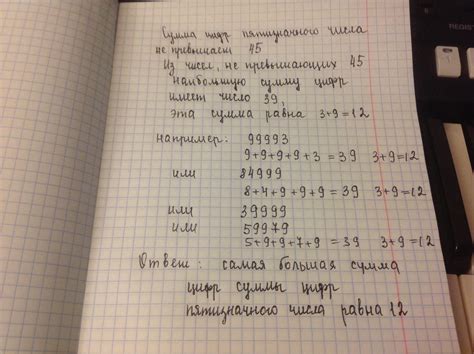 Сумма цифр пятизначного числа
не превышает 45
Из чисел, не превышающих 45
наибольшую сумму цифр
имеет число 39,
эта сумма равна 3+9=12
например: 99993
9+9+9+9+3=39 3+9=12
или 84999
8+4+9+9+9=39 3+9=12
или 39999
или 59979
5+9+9+7+9=39 3+9=12
Ответ: самая большая сумма
цифр суммы цифр
пятизначного числа равна 12
REGIS